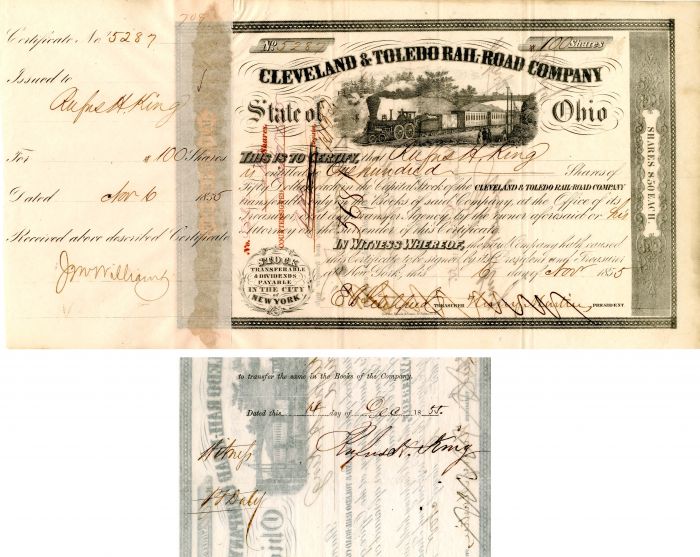 Certificate No 5287
Issued to
Rufus H. King
For 100 Shares
Dated Nov 6 1855
Received above described Certificate
No. 5287 $ 100 Shares
CLEVELAND & TOLEDO RAIL-ROAD COMPANY
State of Ohio
THIS IS TO CERTIFY, that Rufus H. King
is entitled One hundred Shares of
Fifty Dollars each in the Capital Stock of the CLEVELAND & TOLEDO RAIL-ROAD COMPANY
transferable only on the books of said Company, at the Office of its
Treasurer or at its Transfer Agency, by the owner aforesaid or his
Attorney on the surrender of this Certificate
IN WITNESS WHEREOF, the said Company hath caused
this Certificate to be signed by its President and Treasurer
at New York, this 6 day of Nov 1855
TREASURER PRESIDENT
STOCK
TRANSFERABLE
& DIVIDENDS
PAYABLE
IN THE CITY
OF
NEW YORK
SHARES $50 EACH
to transfer the same in the Books of the Company.
Dated this 14 day of Dec 1855.
Witness Rufus H. King